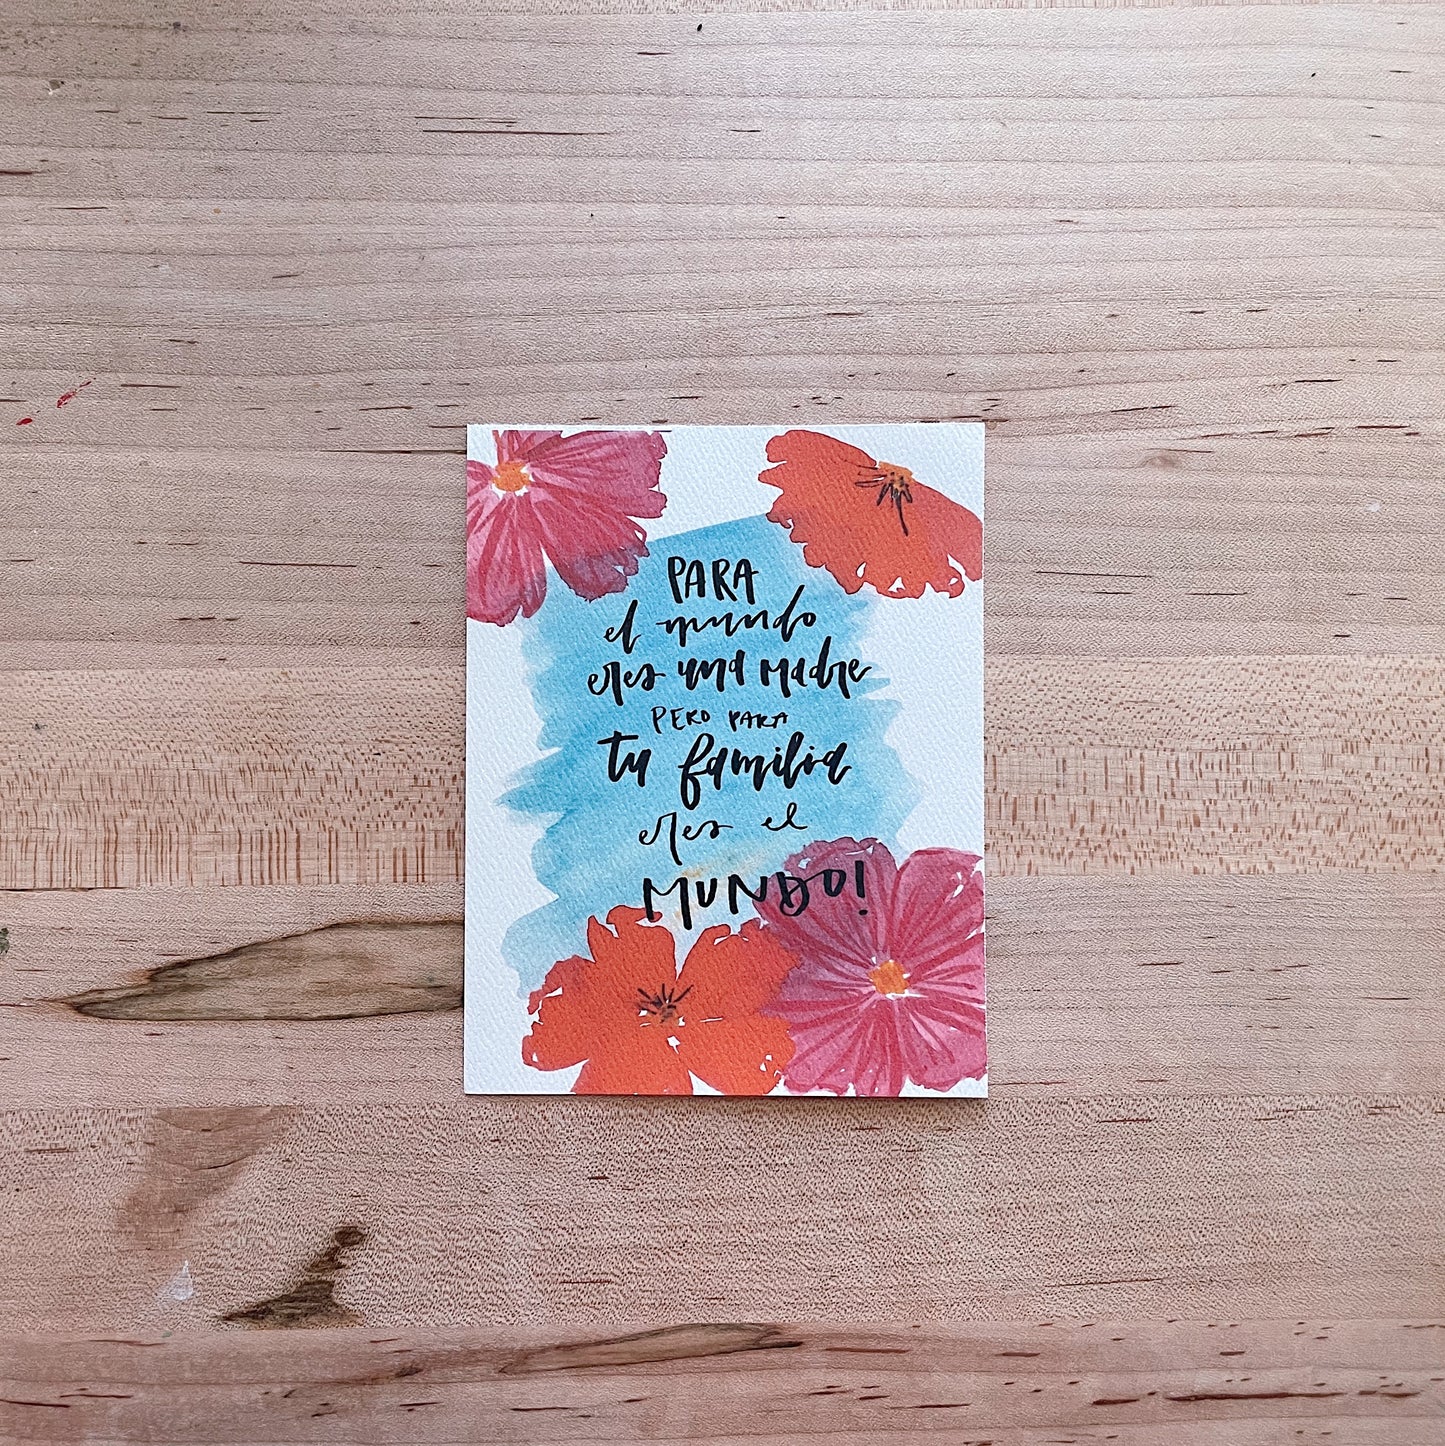 PARA
el mundo
eres una madre
PERO PARA
tu familia
eres el
MUNDO!